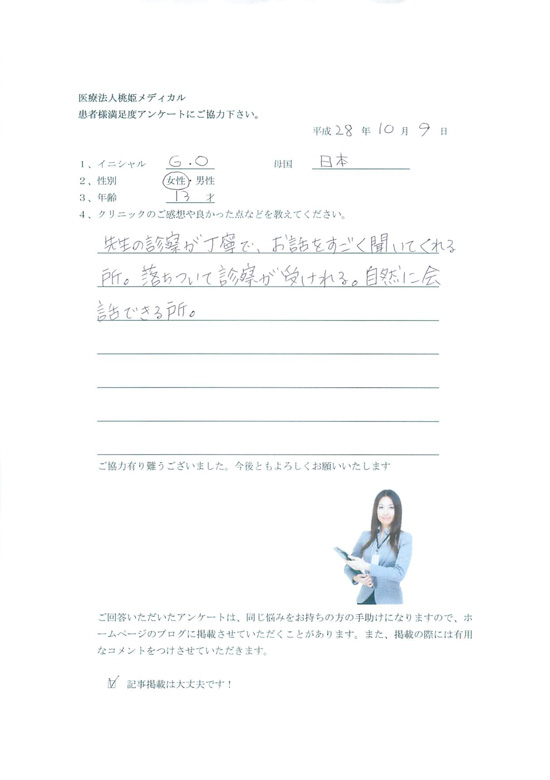 医療法人桃姫メディカル
患者様満足度アンケートにご協力下さい。
平成 28 年 10 月 9 日
1、イニシャル G.O 母国 日本
2、性別 女性・男性
3、年齢 13 才
4、クリニックのご感想や良かった点などを教えてください。
先生の診察が丁寧で、お話をすごく聞いてくれる
所。落ちついて診察が受けれる。自然に会
話できる所。
ご協力有り難うございました。今後ともよろしくお願いいたします
ご回答いただいたアンケートは、同じ悩みをお持ちの方の手助けになりますので、ホ
ームページのブログに掲載させていただくことがあります。また、掲載の際には有用
なコメントをつけさせていただきます。
☑ 記事掲載は大丈夫です！